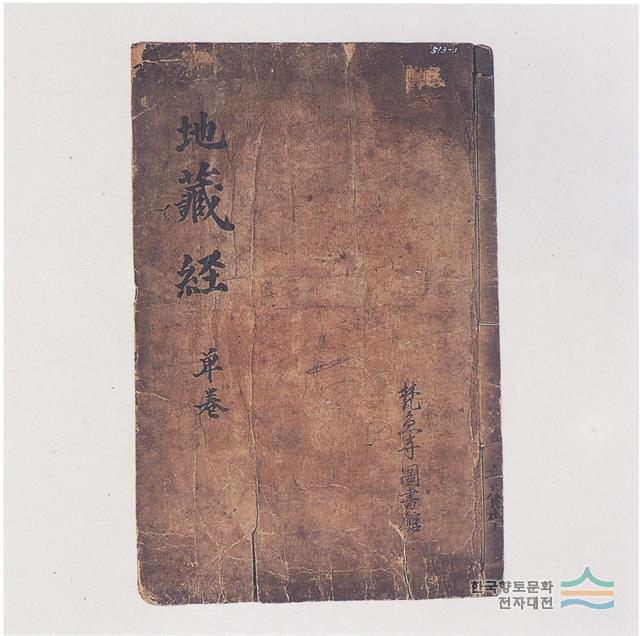 513-1
地藏経
单卷
梵魚寺圖書館
한국향토문화
전자대전